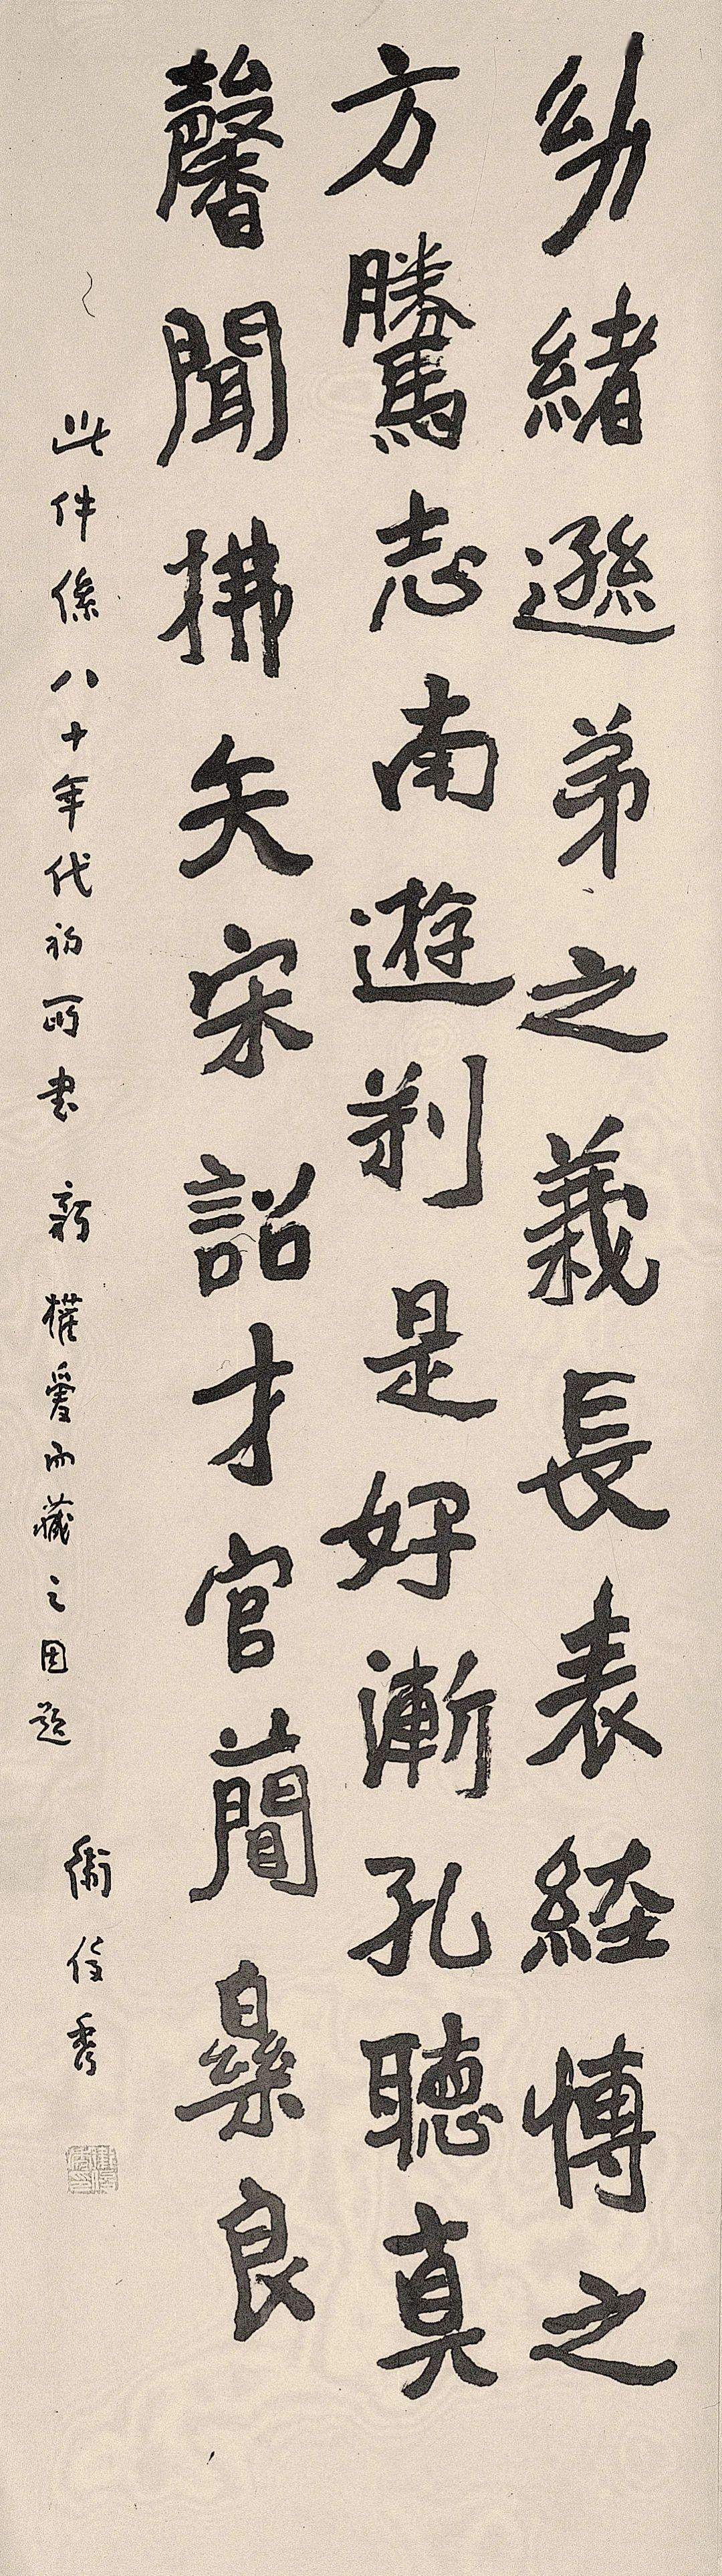 幼緒遜弟之義長表經博之
方騰志南遊利是好漸孔聽真
馨聞拂矢宋詔才官蘭彝良
此件係八十年代初所書 新權愛而藏之因題
衛俊秀